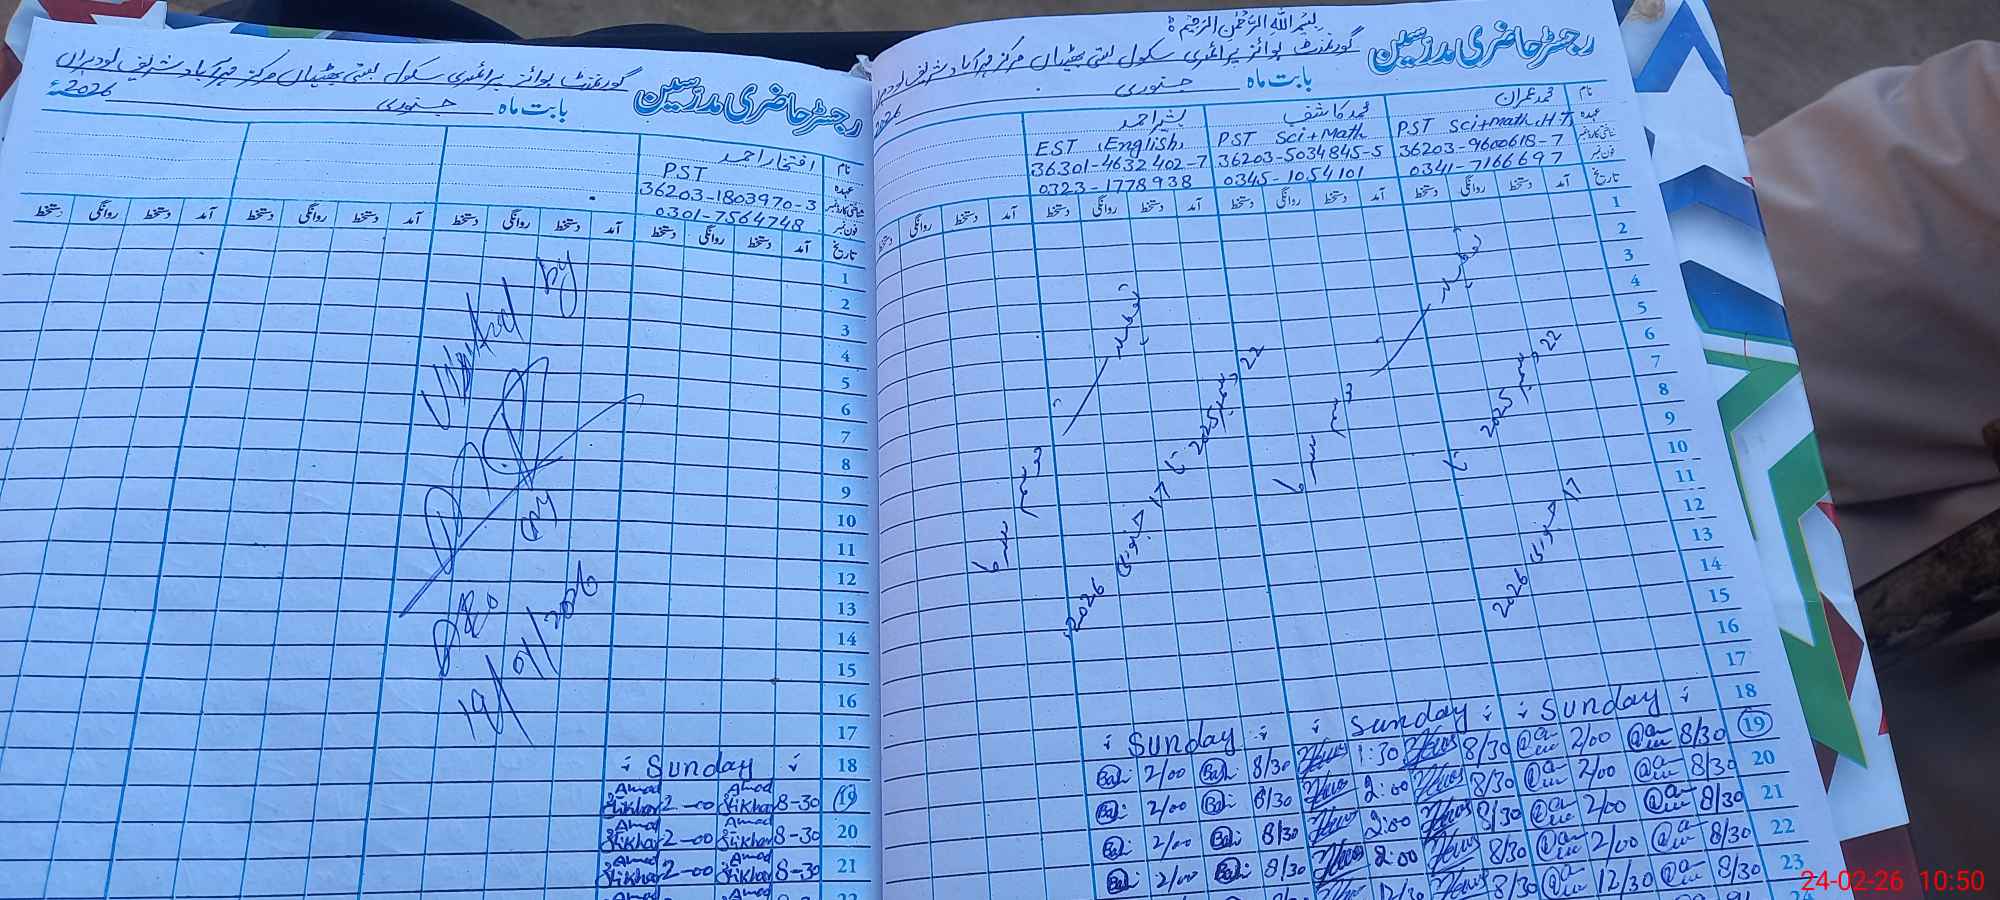 بسم اللہ الرحمٰن الرحیم
رجسٹر حاضری مدرسین
گورنمنٹ بوائز پرائمری سکول بستی بھٹیاں مرکز قہر آباد شریف لودہراں
بابت ماہ جنوری 2026
نام محمد عمران محمد کاشف بشیر احمد
عہدہ PST Sci+Math H.T PST Sci+Math EST (English)
شناختی کارڈ نمبر 36203-9600618-7 36203-5034845-5 36301-4632402-7
فون نمبر 0341-7166697 0345-1054101 0323-1778938
تاریخ آمد دستخط روانگی دستخط آمد دستخط روانگی دستخط آمد دستخط روانگی دستخط آمد دستخط روانگی دستخط
1
2
3
4
5
6
7
8
9
10
11
12
13
14
15
16
17
تعطیلات موسم سرما
22 دسمبر 2025 تا
17 جنوری 2026
تعطیلات موسم سرما
22 دسمبر 2025 تا 17 جنوری 2026
18 Sunday Sunday Sunday
19 8/30 2/00 8/30 1:30 8/30 2/00
20 8/30 2/00 8/30 2:00 8/30 2/00
21 8/30 2/00 8/30 2:00 8/30 2/00
22 8/30 2/00 8/30 2:00 8/30 2/00
23 8/30 12/30 8/30 12/30
24
رجسٹر حاضری مدرسین
گورنمنٹ بوائز پرائمری سکول بستی بھٹیاں مرکز قہر آباد شریف لودہراں
بابت ماہ جنوری 2026ء
نام افتخار احمد
عہدہ PST
شناختی کارڈ نمبر 36203-1803970-3
فون نمبر 0301-7564748
تاریخ آمد دستخط روانگی دستخط آمد دستخط روانگی دستخط آمد دستخط روانگی دستخط آمد دستخط روانگی دستخط
1
2
3
4
5
6
7
8
9
10
11
12
13
14
15
16
17
Visited by
19/01/2026
18 Sunday
19 8-30 Iftikhar Amad 2-00 Iftikhar Amad
20 8-30 Iftikhar Amad 2-00 Iftikhar Amad
21 8-30 Iftikhar Amad 2-00 Iftikhar Amad
22
24-02-26 10:50